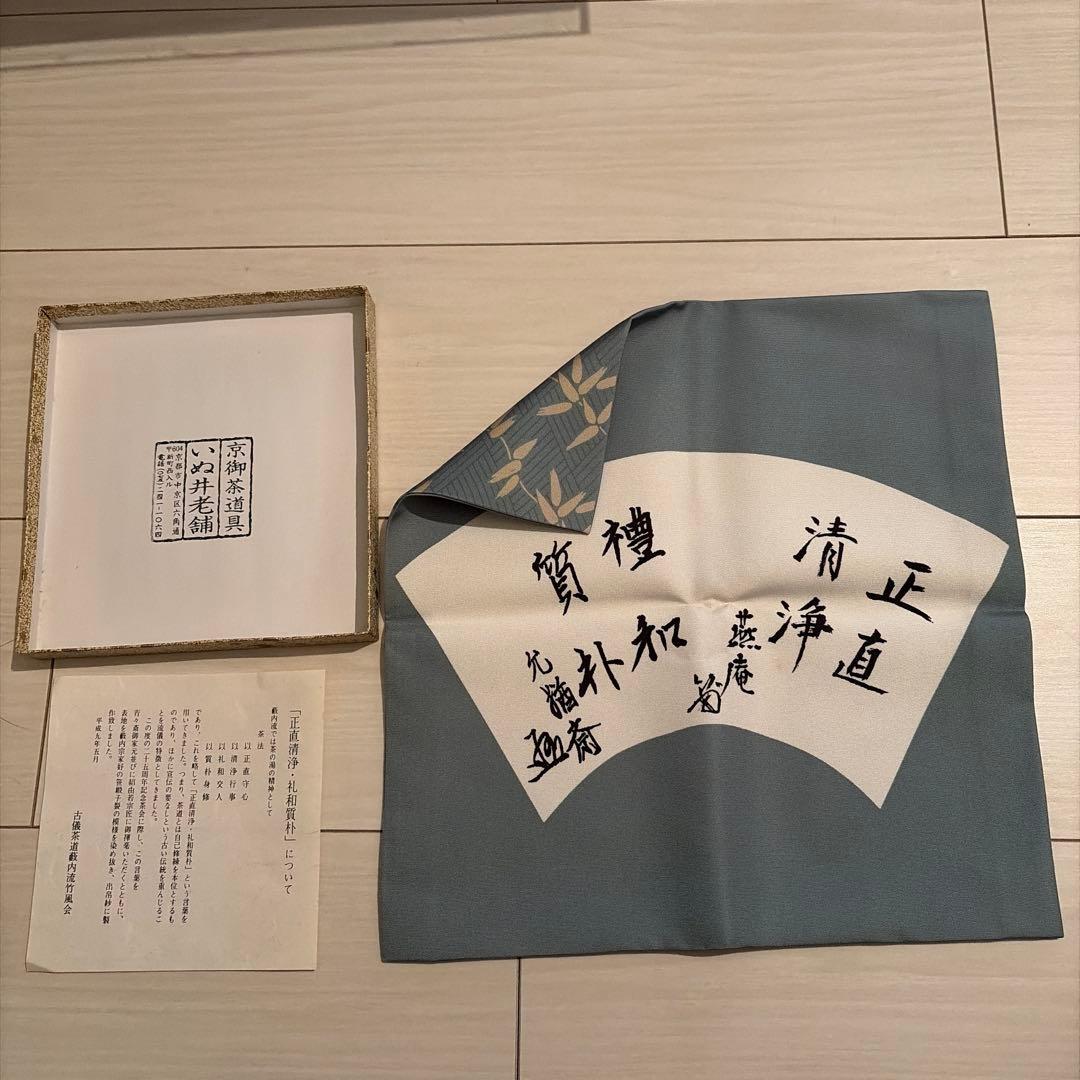 京御茶道具
いぬ井老舗
〒604 京都市中京区六角通
新町西入ル
電話(〇七五)二四一-一〇六四
「正直清浄・礼和質朴」について
藪内流では茶の湯の精神として
茶法
以正直守心
以清浄行事
以礼和交人
以質朴身修
であり、これを略して「正直清浄・礼和質朴」という言葉を
用いてきました。つまり、茶道とは自己修練を本位とするも
のであり、ほかに宣伝の要なしという古い伝統を重んじるこ
とを流儀の特徴としてきました。
この度の二十五周年記念茶会に際し、この言葉を
青々斎御家元並びに紹由若宗匠に御揮毫いただくとともに、
表地を藪内宗家好の笹緞子裂の模様を染め抜き、出帛紗に製
作致しました。
平成九年五月
古儀茶道藪内流竹風会
正直
清浄
燕庵
禮和
質朴
允猶斎